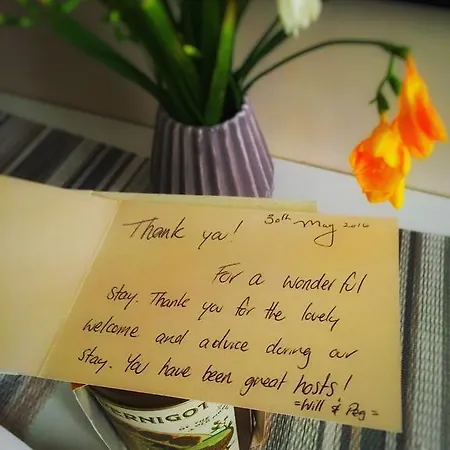 Thank ya! 30th May 2016
For a wonderful
stay. Thank you for the lovely
welcome and advice during our
stay. You have been great hosts!
=Will & Peg=